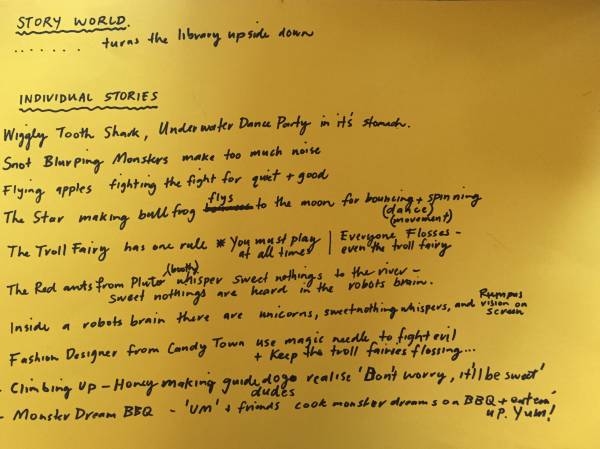 STORY WORLD.
....... turns the library upside down
INDIVIDUAL STORIES
Wiggly Tooth Shark, Underwater Dance Party in it's stomach.
Snot Blurping Monsters make too much noise
Flying apples fighting the fight for quiet + good
The Star making bull frog flys to the moon for bouncing + spinning
(dance)
(movement)
The Troll Fairy has one rule * You must play at all times | Everyone Flosses - even the troll fairy
The Red ants from Pluto (booth) whisper sweet nothings to the river -
sweet nothings are heard in the robots brain.
Inside a robots brain there are unicorns, sweet nothing whispers, and Rumpus vision on screen
Fashion Designer from Candy Town use magic needle to fight evil
+ Keep the troll fairies flossing...
- Climbing up - Honey making guide dogs realise 'Don't worry, it'll be sweet'
dudes
- Monster Dream BBQ - 'UM' + friends cook monster dreams on BBQ + eat em' up. Yum!